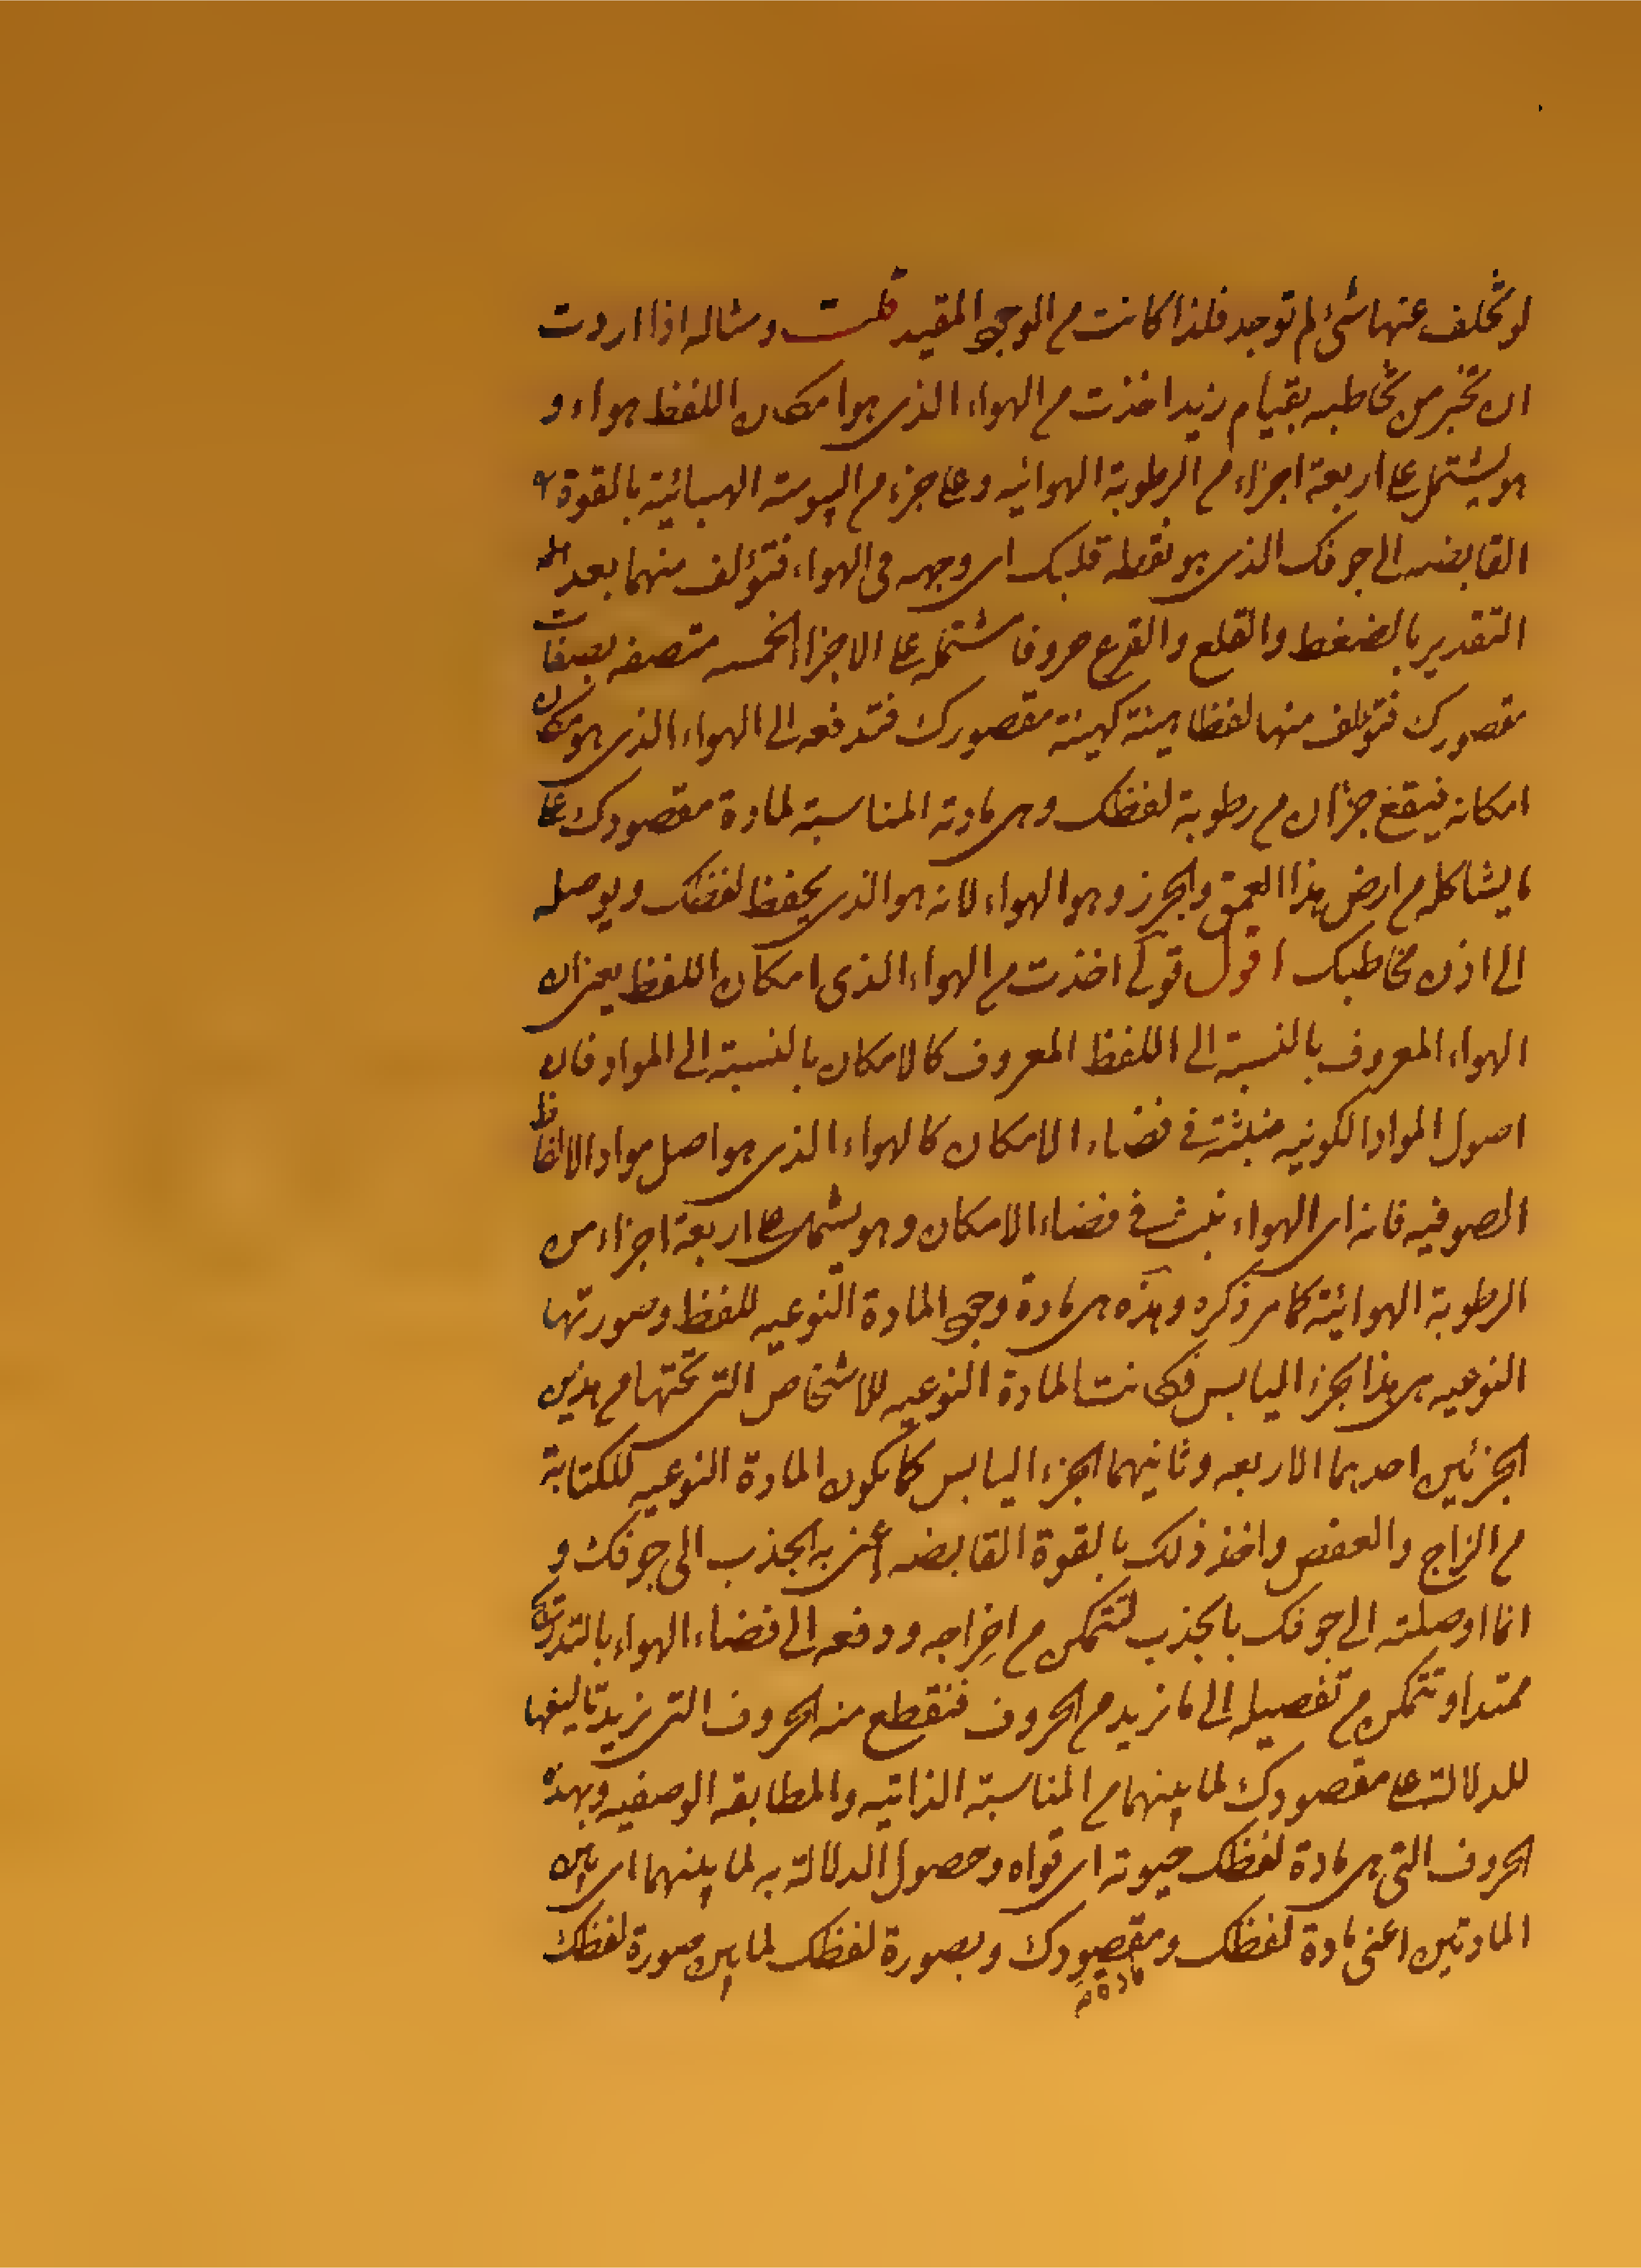 لو تخلف عنها شئ لم توجد فلذا كانت م الوجود المقيد قلت ومثاله اذا اردت
ان تخبر من تخاطبه بقيام زيد اخذت م الهواء الذي هو امكان اللفظ هواء و
هو يشتمل على اربعة اجزاء م الرطوبة الهوائيه وعلى جزء م اليبوسته الهبائية بالقوة
القابضه الى جوفك الذي هو نقطه قلبك اى وجهه فى الهواء فتؤلف منهما بعد
التقدير بالضغط والقلع والقرع حروفا مشتمله على الاجزاء الخمسه متصفه بصفات
مقصورك فتؤلف منها لفظا هيئة كهيئة مقصورك فتدفعه الى الهواء الذي هو مكان
امكانه فيقع جزان م رطوبة لفظك وهى مادته المناسبة لمادة مقصودك على
ما يشاكله م ارض هذا العمق والجرز وهو الهواء لانه هو الذي يحفظ لفظك ويوصله
الى اذن مخاطبك اقول قولى اخذت م الهواء الذى امكان اللفظ يعنى ان
الهواء المعروف بالنسبة الى اللفظ المعروف كالامكان بالنسبة الى المواد فان
اصول المواد الكونيه منبثة فى فضاء الامكان كالهواء الذى هو اصل مواد الالفاظ
الصوفيه فانه اى الهواء نبث فى فضاء الامكان وهو يشتمل على اربعة اجزاء من
الرطوبة الهوائية كما مر ذكره وهذه هى مادة وجود المادة النوعيه للفظ وصورتها
النوعيه هى هذا الجزء اليابس فكانت المادة النوعيه للاشخاص التى تحتها م هذين
الجزئين احدهما الاربعه وثانيهما الجزء اليابس كما تكون المادة النوعيه للكتابة
م الزاج والعفص واخذ ذلك بالقوة القابضه اعنى به الجذب الى جوفك و
انما اوصلته الى جوفك بالجذب لتتمكن م اخراجه ودفعه الى فضاء الهواء بالتدريج
ممتدا وتتمكن م تفصيله الى ما نريد م الحروف فنقطع منه الحروف التى نريد تاليفها
للدلالة على مقصودك لما بينهما م المناسبة الذاتيه والمطابقه الوصفيه وبهذه
الحروف التى هى مادة لفظك حيوته اى قواه وحصول الدلالة به لما بينهما اى بين
المادتين اعنى مادة لفظك ومقصودك وبصورة لفظك لما بين صورة لفظك
مادة